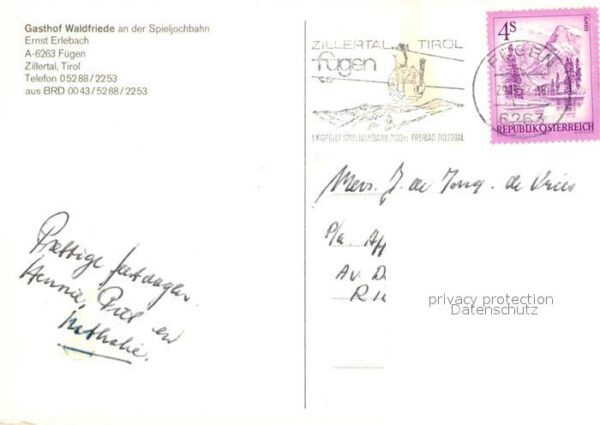 Gasthof Waldfriede an der Spieljochbahn
Ernst Erlebach
A-6263 Fügen
Zillertal, Tirol
Telefon 05288/2253
aus BRD 0043/5288/2253
ZILLERTAL TIROL
fügen
SPIELJOCHBAHN FREIBAD ZILLERTAL
FÜGEN
6263
4S
REPUBLIK ÖSTERREICH
Mevr. J. de Jong - de Vries
P/a. Aff
Av. D
R
privacy protection
Datenschutz
Prettige feestdagen
Hennie, Piet en
Nathalie.